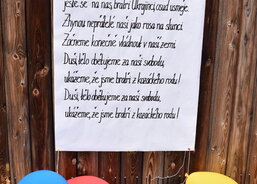 ještě se na nás, bratři Ukrajinci, osud usměje.
Zhynou nepřátelé naši jako rosa na slunci.
Začneme konečně vládnout v naší zemi.
Duši, tělo obětujeme za naši svobodu,
ukážeme, že jsme bratři z kozáckého rodu!
Duši, tělo obětujeme za naši svobodu,
ukážeme, že jsme bratři z kozáckého rodu!